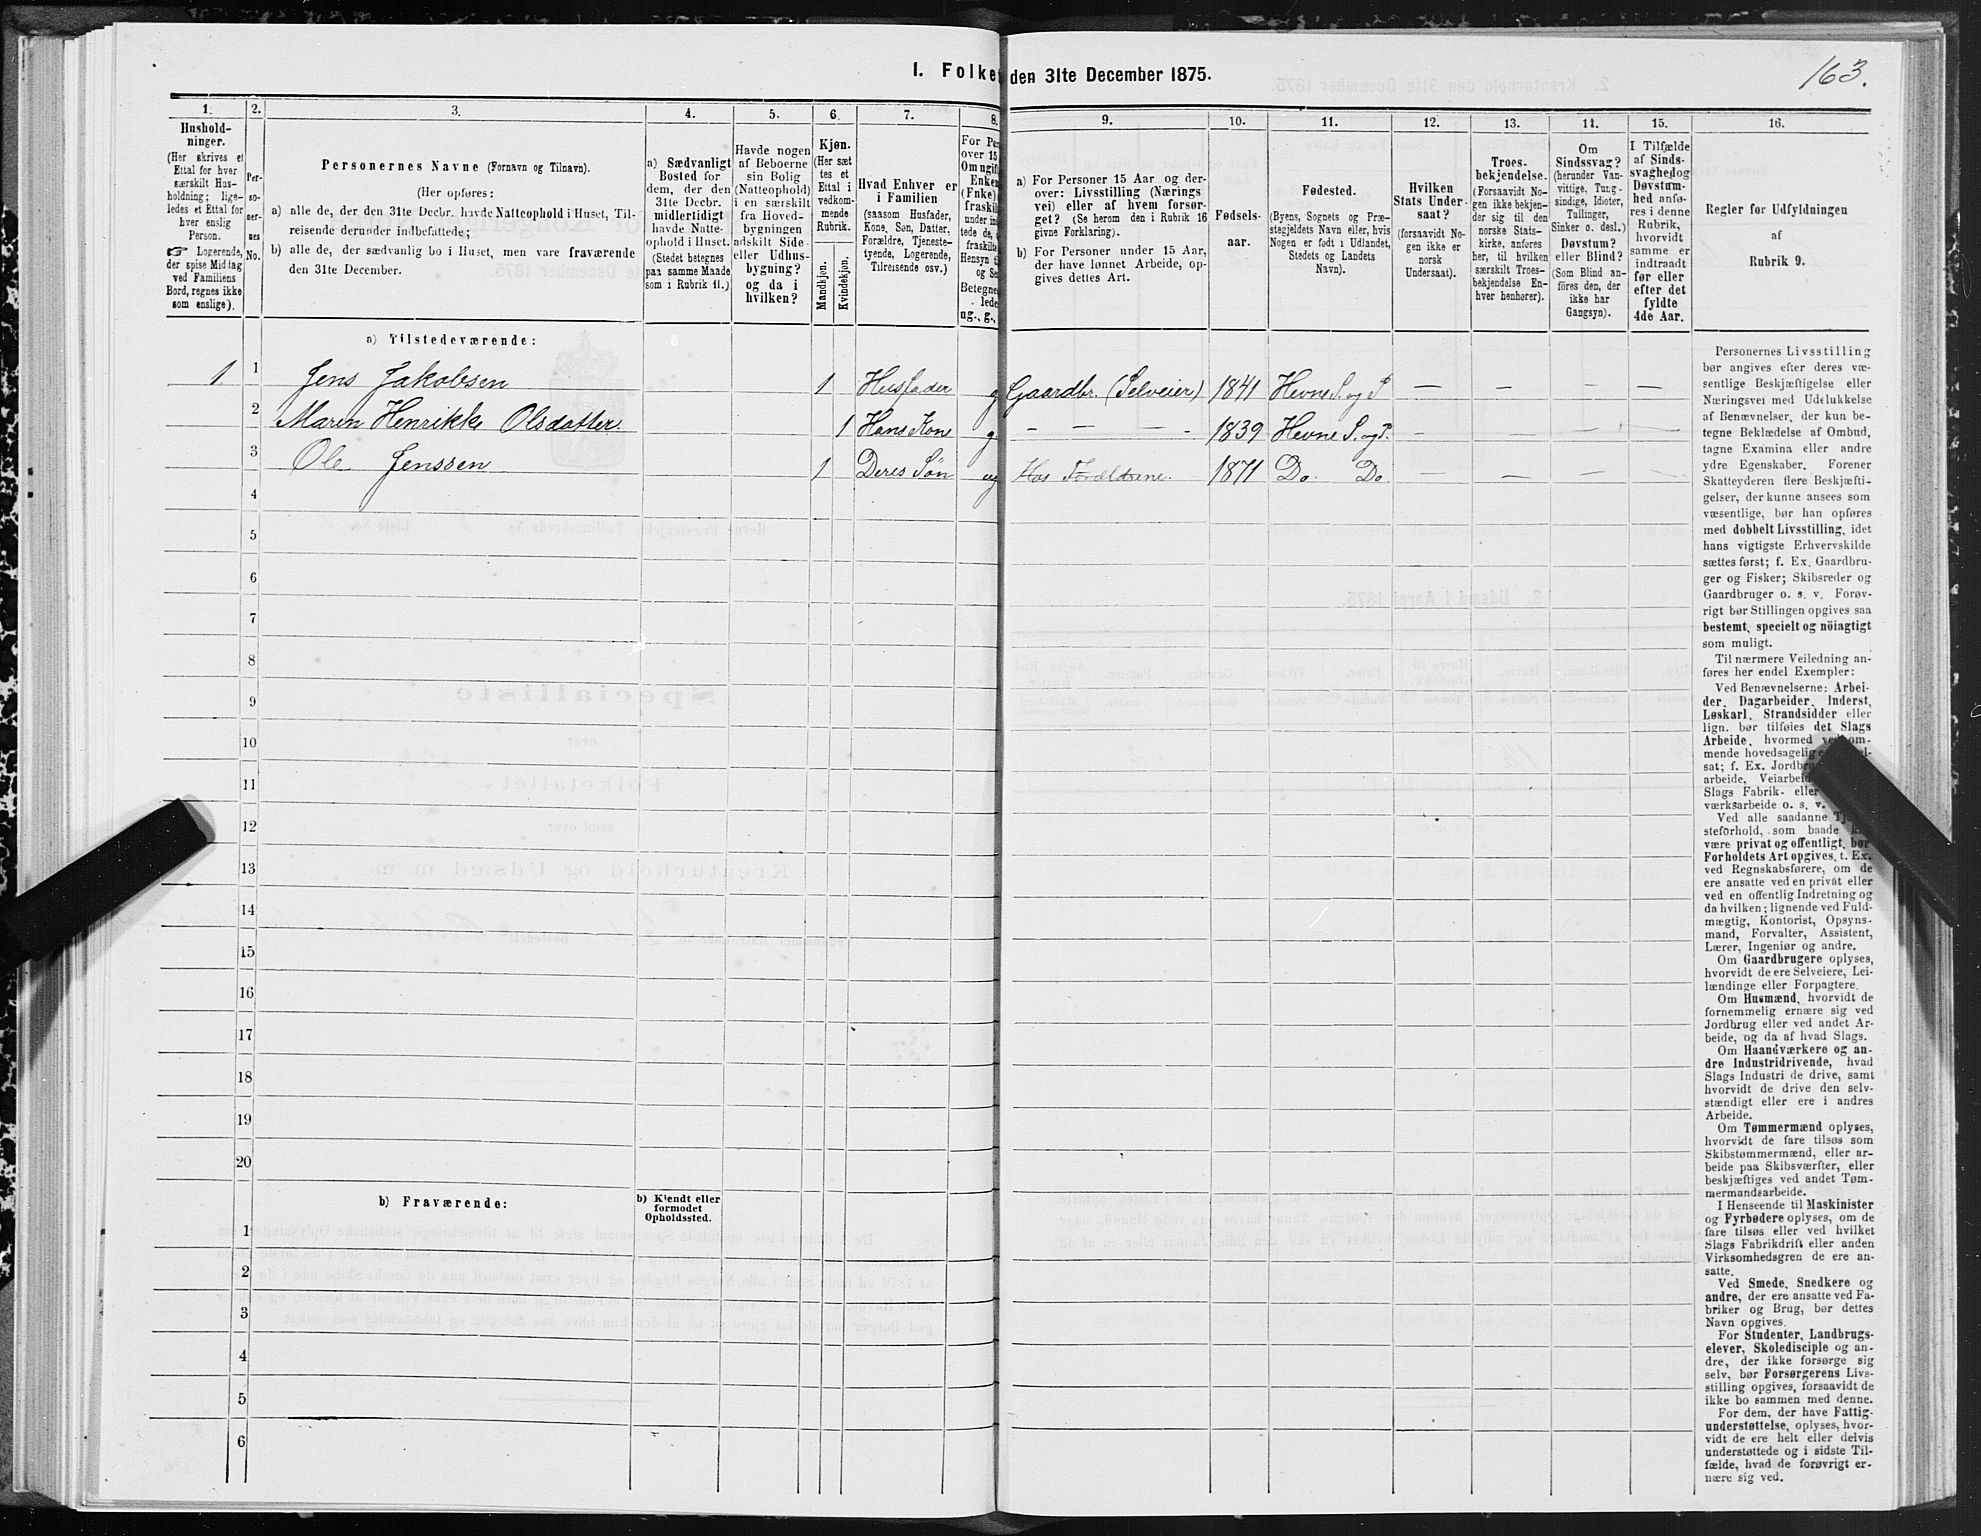 163.
I. Folke
den 31te December 1875.
1.
Hushold-
ninger.
(Her skrives et
Ettal for hver
særskilt Hus-
holdning; lige-
ledes et Ettal for
hver enslig
Person.
☞ Logerende,
der spise Middag
ved Familiens
Bord, regnes ikke
som enslige).
2.
Per-
so-
ner-
nes
No.
3.
Personernes Navne (Fornavn og Tilnavn).
(Her opføres:
a) alle de, der den 31te Decbr. havde Natteophold i Huset, Til-
reisende derunder indbefattede;
b) alle de, der sædvanlig bo i Huset, men vare fraværende
den 31te December.
4.
a) Sædvanligt
Bosted for
dem, der den
31te Decbr.
midlertidigt
havde Natte-
ophold i Huset.
(Stedet betegnes
paa samme Maade
som i Rubrik 11.)
5.
Havde nogen
af Beboerne
sin Bolig
(Natteophold)
i en særskilt
fra Hoved-
bygningen
adskilt Side-
eller Udhus-
bygning?
og da i
hvilken?
6.
Kjøn.
(Her sæt
tes et
Ettal i
vedkom-
mende
Rubrik.
Mandkjøn.
Kvindekjøn.
7.
Hvad Enhver er
i Familien
(saasom Husfader,
Kone, Søn, Datter,
Forældre, Tjeneste-
tyende, Logerende,
Tilreisende osv.)
8.
For Pe
over 15
Om ugif
Enke
(Fnke)
fraskil
under in
tede de,
fraskilt
Hensyn t
og Se
Betegne
lede
ug., g.,
9.
a) For Personer 15 Aar og der-
over: Livsstilling (Nærings
vei) eller af hvem forsør-
get? (Se herom den i Rubrik 16
givne Forklaring).
b) For Personer under 15 Aar,
der have lønnet Arbeide, op-
gives dettes Art.
10.
Fødsels-
aar.
11.
Fødested.
(Byens, Sognets og Præ-
stegjeldets Navn eller, hvis
Nogen er født i Udlandet,
Stedets og Landets
Navn).
12.
Hvilken
Stats Under-
saat?
(forsaavidt No-
gen ikke er
norsk
Undersaat).
13.
Troes-
bekjendelse.
(Forsaavidt No-
gen ikke bekjen-
der sig til den
norske Stats-
kirke, anføres
her, til hvilken
særskilt Troes-
bekjendelse En-
hver henhører).
14.
Om
Sindssvag?
(herunder Van-
vittige, Tung-
sindige, Idioter,
Tullinger,
Sinker o. desl.)
Døvstum?
eller Blind?
(Som Blind an-
føres den, der
ikke har
Gangsyn).
15.
I Tilfælde
af Sinds-
svaghed og
Døvstum-
hed anfø-
res i denne
Rubrik,
hvorvidt
samme er
indtraadt
før eller
efter det
fyldte
4de Aar.
16.
Regler for Udfyldningen
af
Rubrik 9.
a) Tilstedeværende:
1 1 Jens Jakobsen 1 Husfader g Gaardbr. (Selveier) 1841 Hevne S. og P — — — —
2 Maren Henrikke Olsdatter. 1 Hans Kone g — — — 1839 Hevne S. og P. — — — —
3 Ole Jenssen 1 Deres Søn ug Hos Forældrene. 1871 Do. Do. — — — —
4
5
6
7
8
9
10
11
12
13
14
15
16
17
18
19
20
b) Fraværende:
b) Kjendt eller
formodet
Opholdssted.
1
2
3
4
5
6
Personernes Livsstilling
bør angives efter deres væ-
sentlige Beskjæftigelse eller
Næringsvei med Udelukkelse
af Benævnelser, der kun be-
tegne Beklædelse af Ombud,
tagne Examina eller andre
ydre Egenskaber. Forener
Skatteyderen flere Beskjæfti-
gelser, der kunne ansees som
væsentlige, bør han opføres
med dobbelt Livsstilling, idet
hans vigtigste Erhvervskilde
sættes først; f. Ex. Gaardbru-
ger og Fisker; Skibsreder og
Gaardbruger o. s. v. Forøv-
rigt bør Stillingen opgives saa
bestemt, specielt og nöiagtigt
som muligt.
Til nærmere Veiledning an-
føres her endel Exempler:
Ved Benævnelserne: Arbei-
der, Dagarbeider, Inderst,
Løskarl, Strandsidder eller
lign. bør tilføies det Slags
Arbeide, hvormed vedkom-
mende hovedsagelig
sat; f. Ex. Jordbr
arbeide, Veiarbei
Slags Fabrik- eller
værksarbeide o. s. v.
Ved alle saadanne Tj
steforhold, som baade
være privat og offentligt, bør
Forholdets Art opgives, t. Ex.
ved Regnskabsførere, om de
ere ansatte ved en privat eller
ved en offentlig Indretning og
da hvilken; lignende ved Fuld-
mægtig, Kontorist, Opsyns-
mand, Forvalter, Assistent,
Lærer, Ingeniør og andre.
Om Gaardbrugere oplyses,
hvorvidt de ere Selveiere, Lei-
lændinge eller Forpagtere.
Om Husmænd, hvorvidt de
fornemmelig ernære sig ved
Jordbrug eller ved andet Ar-
beide, og da af hvad Slags.
Om Haandværkere og an-
dre Industridrivende, hvad
Slags Industri de drive, samt
hvorvidt de drive den selv-
stændigt eller ere i andres
Arbeide.
Om Tømmermænd oplyses,
hvorvidt de fare tilsøs som
Skibstømmermænd, eller ar-
beide paa Skibsværfter, eller
beskjæftiges ved andet Tøm-
mermandsarbeide.
I Henseende til Maskinister
og Fyrbødere oplyses, om de
fare tilsøs eller ved hvilket
Slags Fabrikdrift eller anden
Virksomhedsgren de ere an-
satte.
Ved Smede, Snedkere og
andre, der ere ansatte ved Fa-
briker og Brug, bør dettes
Navn opgives.
For Studenter, Landbrugs-
elever, Skoledisciple og an-
dre, der ikke forsørge sig
selv, bør Forsørgerens Livs-
stilling opgives, forsaavidt de
ikke bo sammen med denne.
For dem, der have Fattig-
understøttelse, oplyses, hvor-
vidt de ere helt eller delvis
understøttede og i sidste Til-
fælde, hvad de forøvrigt er-
nære sig ved.